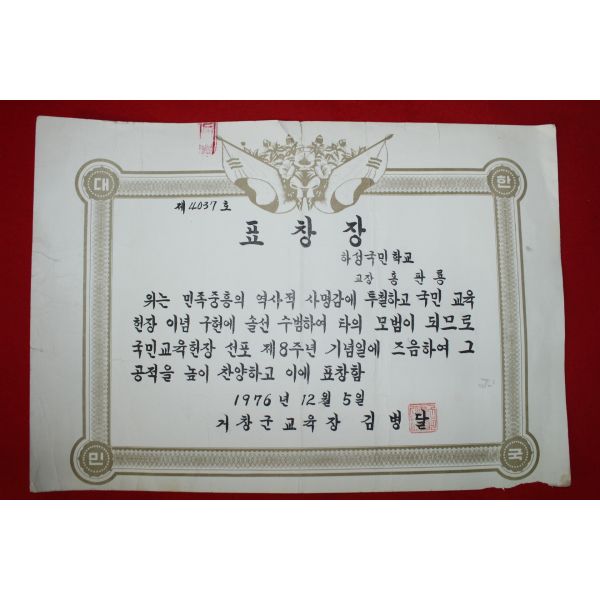 대 한
제 4037 호
표 창 장
하성국민학교
교장 홍 판 룡
위는 민족중흥의 역사적 사명감에 투철하고 국민 교육
헌장 이념 구현에 솔선 수범하여 타의 모범이 되므로
국민교육헌장 선포 제8주년 기념일에 즈음하여 그
공적을 높이 찬양하고 이에 표창함
1976 년 12 월 5 일
거 창 군 교 육 장 김 병 달
민 국